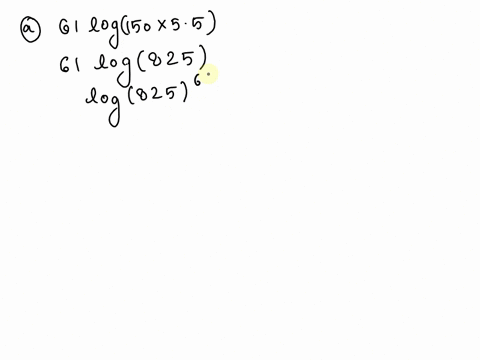 (a) 61 log(150 × 5.5)
61 log(825)
log(825)^6